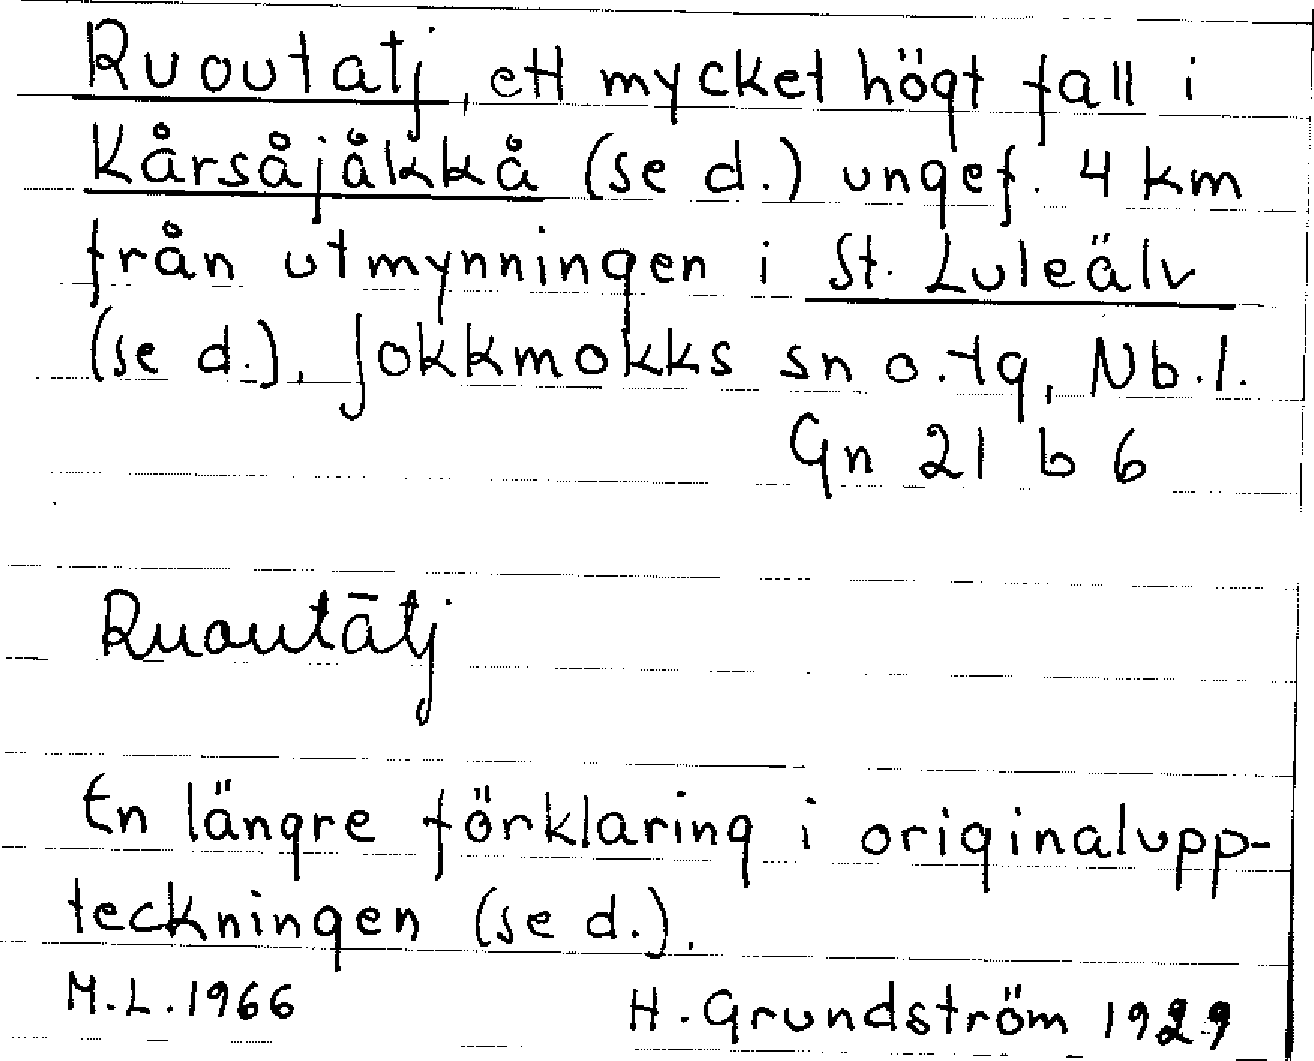 Ruoutatj, ett mycket högt fall i
Kårsåjåkkå (se d.) ungef. 4 km
från utmynningen i St. Luleälv
(se d.), Jokkmokks sn o. tg, Nb. l.
Gn 21 b 6
Ruoutātj
En längre förklaring i originalupp-
teckningen (se d.).
M.L. 1966
H. Grundström 1929